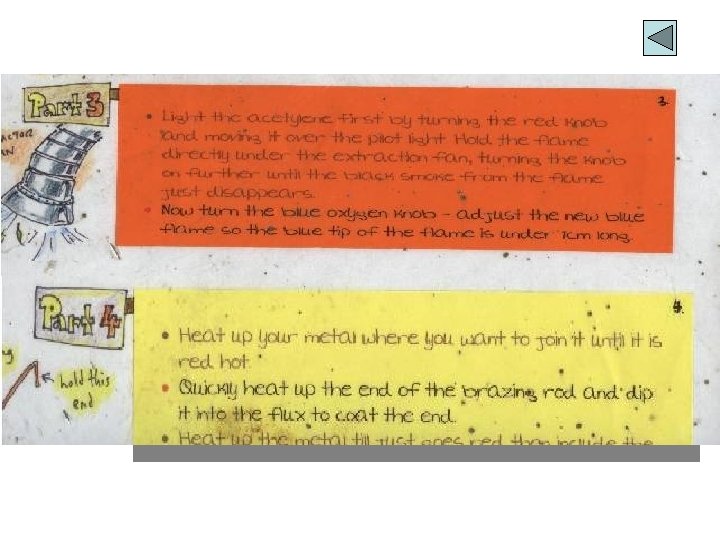 Part 3
3.
• Light the acetylene first by turning the red knob
and moving it over the pilot light Hold the flame
directly under the extraction fan, turning the knob
on further until the black smoke from the flame
just disappears.
• Now turn the blue oxygen knob - adjust the new blue
flame so the blue tip of the flame is under 1cm long.
Part 4
4.
• Heat up your metal where you want to join it until it is
red hot.
• Quickly heat up the end of the brazing rod and dip
it into the flux to coat the end.
hold this
end
• Heat up the metal till just goes red then include the